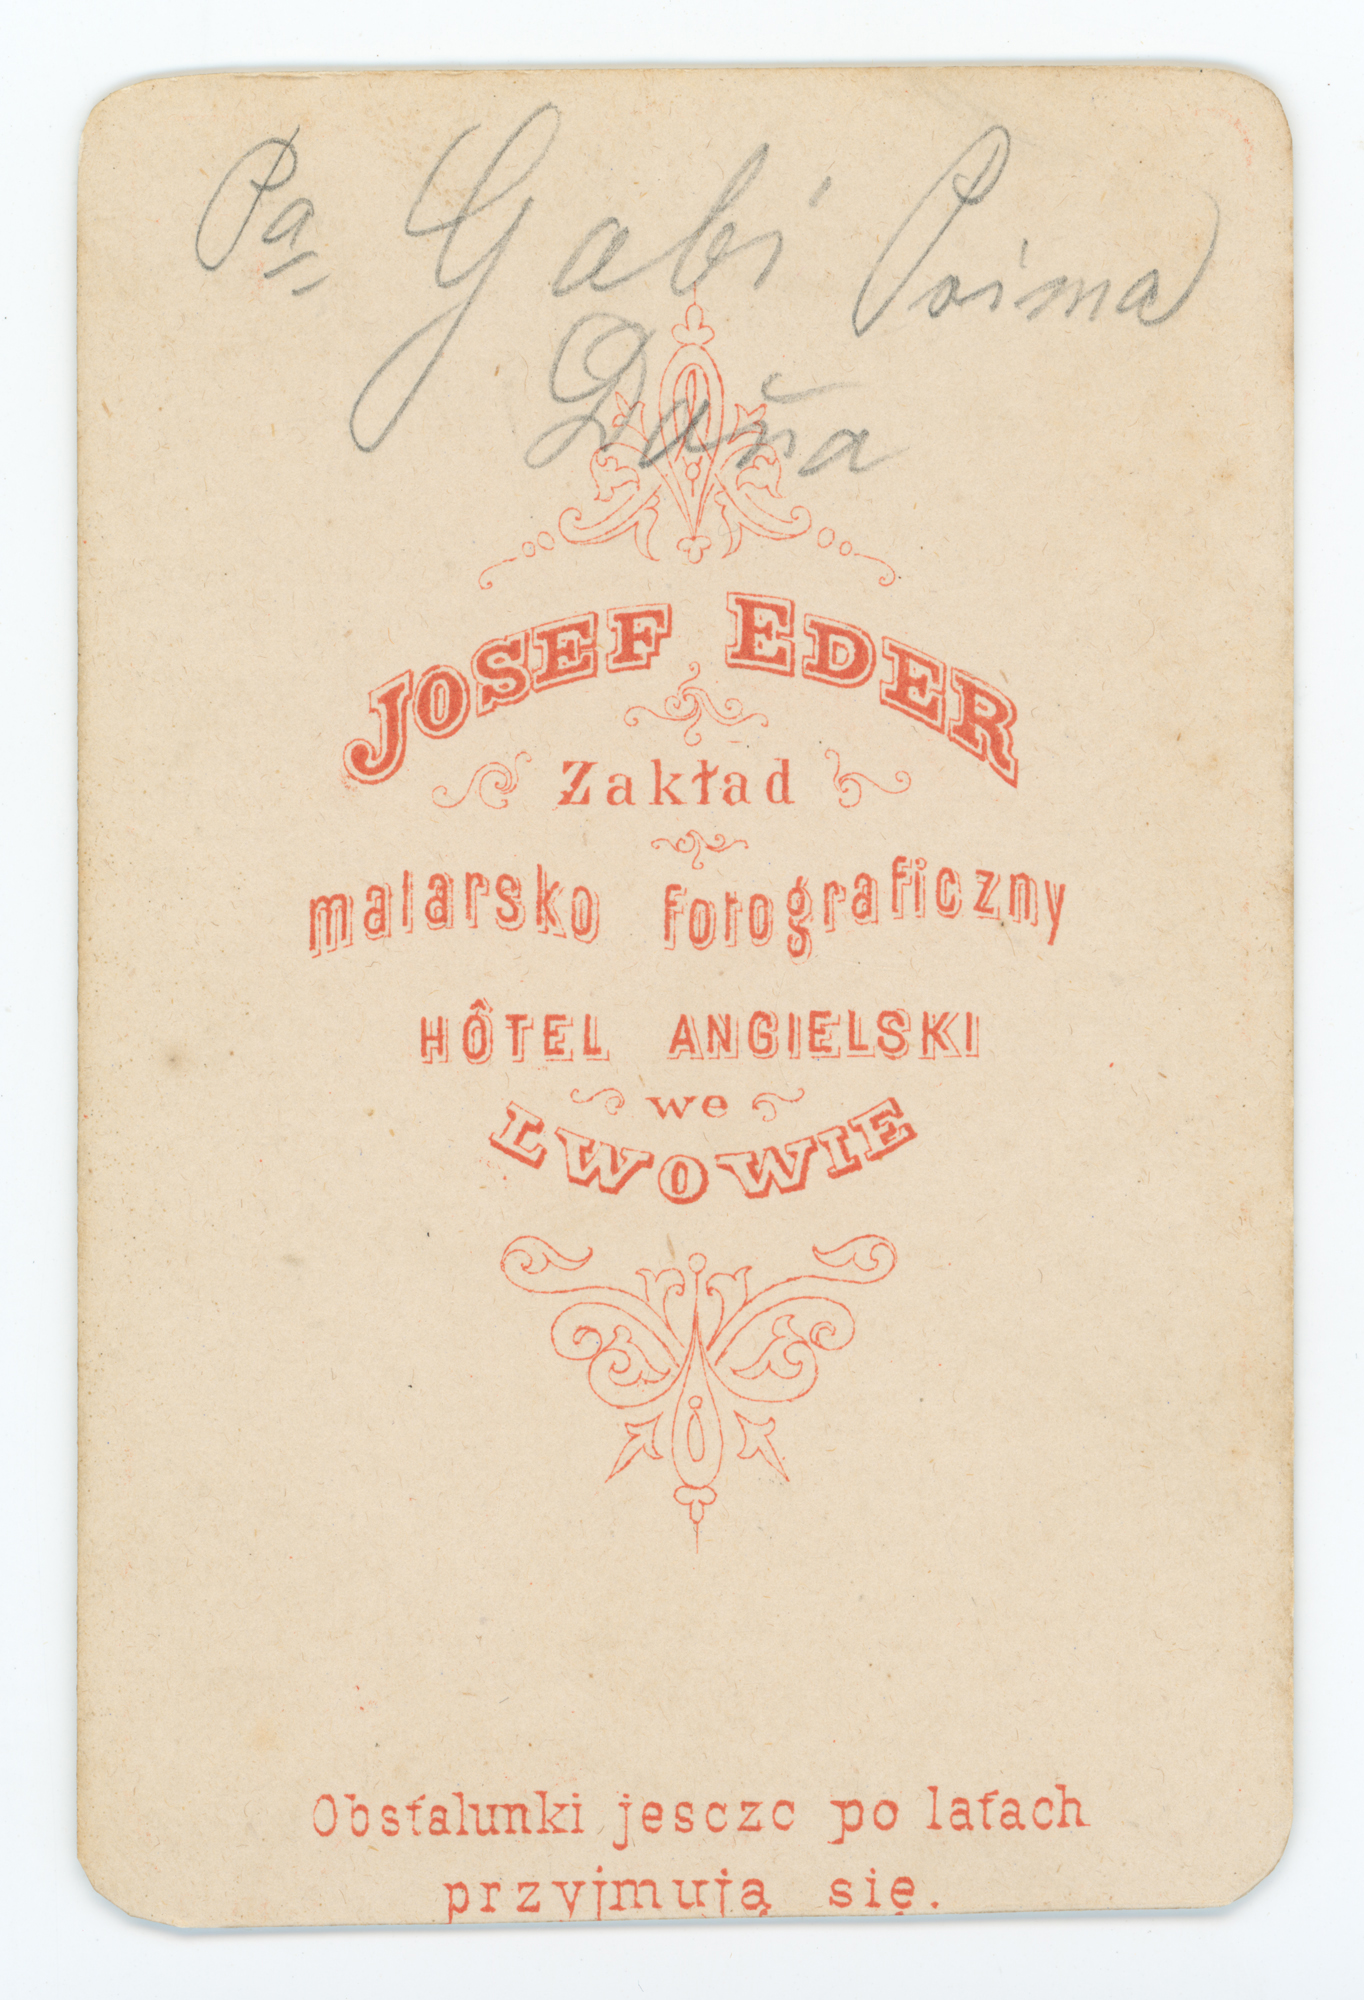 Pa Gabi Prima
Daňa
JOSEF EDER
Zakład
malarsko fotograficzny
HÔTEL ANGIELSKI
we
LWOWIE
Obstalunki jesczc po latach
przyjmują się.